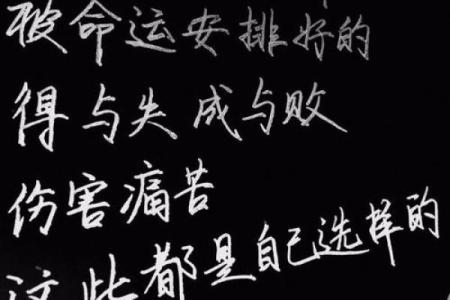 被命运安排好的
得与失 成与败
伤害痛苦
这些都是自己选样的